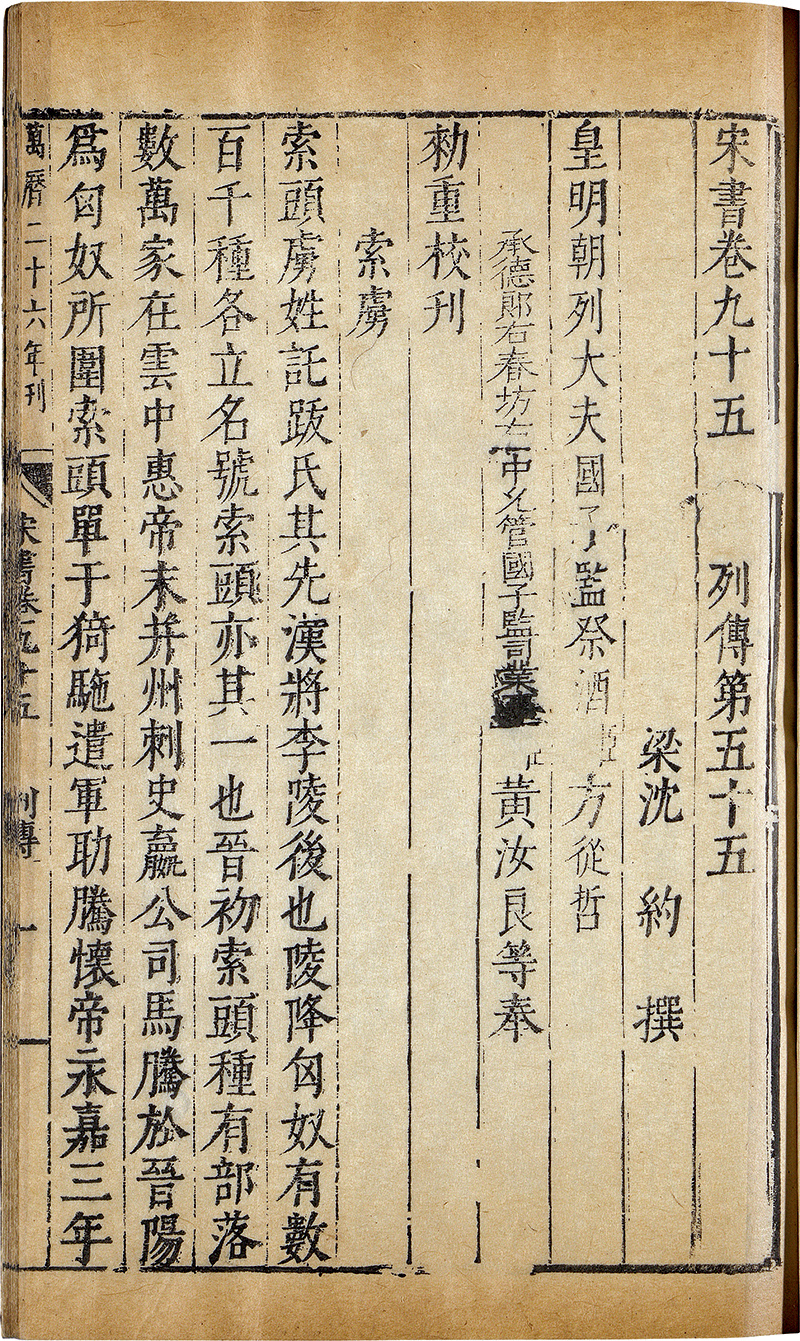 宋書卷九十五　列傳第五十五
梁沈約撰
皇明朝列大夫國子監祭酒方從哲
承德郎右春坊右中允管國子監司業黃汝良等奉
勑重校刊
索虜
索頭虜姓託跋氏其先漢將李陵後也陵降匈奴有數
百千種各立名號索頭亦其一也晉初索頭種有部落
數萬家在雲中惠帝末并州刺史嬴公司馬騰於晉陽
爲匈奴所圍索頭單于猗䮈遣軍助騰懷帝永嘉三年
萬曆二十六年刊　宋書卷九十五　列傳　一